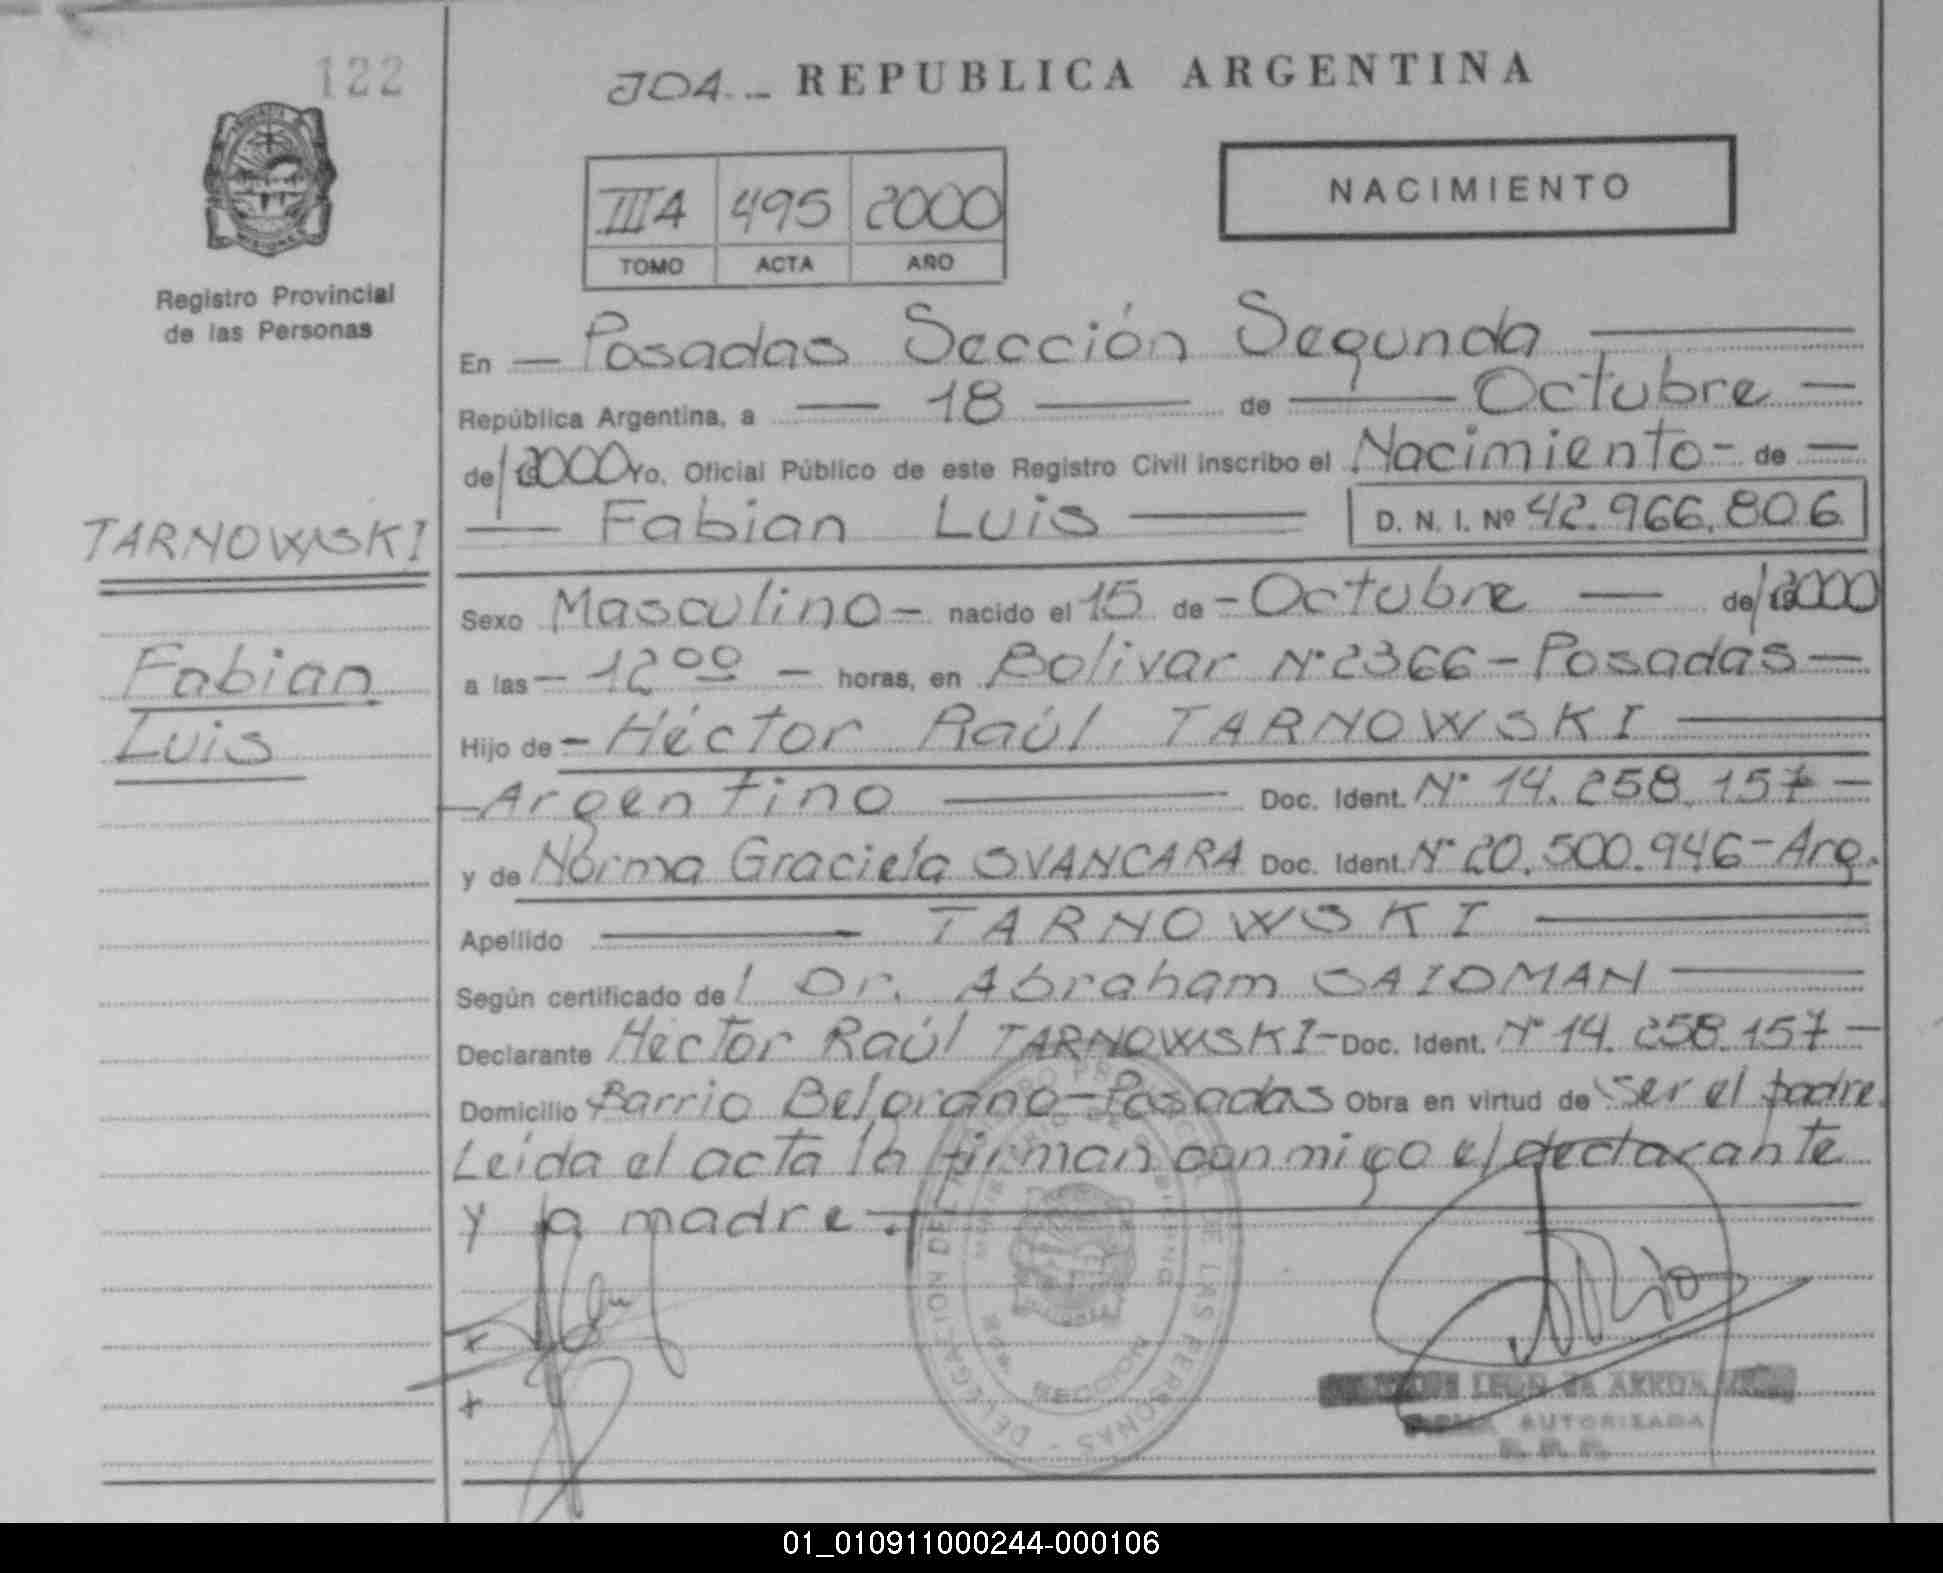 122
JO4.- REPUBLICA ARGENTINA
IIIA 495 2000
TOMO ACTA AÑO
NACIMIENTO
Registro Provincial
de las Personas
En — Posadas Sección Segunda —
República Argentina, a — 18 — de — Octubre —
de 2000 Yo, Oficial Público de este Registro Civil inscribo el Nacimiento - de —
— Fabian Luis — D. N. I. Nº 42.966.806
TARNOWSKI
Fabian
Luis
Sexo Masculino - nacido el 15 de - Octubre — de 2000
a las - 12 00 - horas, en Bolivar Nº 2366 - Posadas —
Hijo de - Héctor Raúl TARNOWSKI —
- Argentino — Doc. Ident. Nº 14.258.157 -
y de Norma Graciela SVANCARA Doc. Ident. Nº 20.500.946 - Arg.
Apellido — TARNOWSKI —
Según certificado del Dr. Abraham SAIDMAN —
Declarante Héctor Raúl TARNOWSKI - Doc. Ident. Nº 14.258.157 -
Domicilio Barrio Belgrano - Posadas Obra en virtud de ser el padre.
Leída el acta la firman conmigo el declarante
y la madre.
DELEGACION DEL REGISTRO PROVINCIAL DE LAS PERSONAS
SECCION
FIRMA AUTORIZADA
01_010911000244-000106